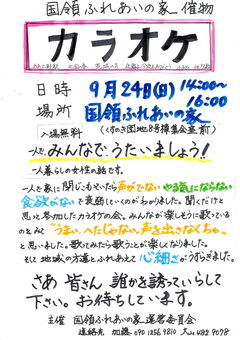 国領ふれあいの家 催物
カラオケ
日時 9月24日(日) 14:00〜16:00
場所 国領ふれあいの家
入場無料 (くすのき団地8号棟集会室前)
一人で、みんなで、うたいましょう!!
一人暮らしの女性の話です。
一人で家に閉じこもっていたら声がでない やる気にならない
食欲がない と衰弱していくのがわかりました。聞くだけと
思って参加したカラオケの会。みんなが楽しそうに歌っている
のをみて "うまい、へたじゃない。声を出さなくちゃ。"
と思いました。歌ってみたら歌うことが楽しくなりました。
そして 地域の方達とふれあえて 心細さがうすらぎました。
さあ 皆さん 誰かを誘っていらして
下さい。お待ちしています。
主催 国領ふれあいの家運営委員会
連絡先 加藤 090 1256 9810 大山 482 9078